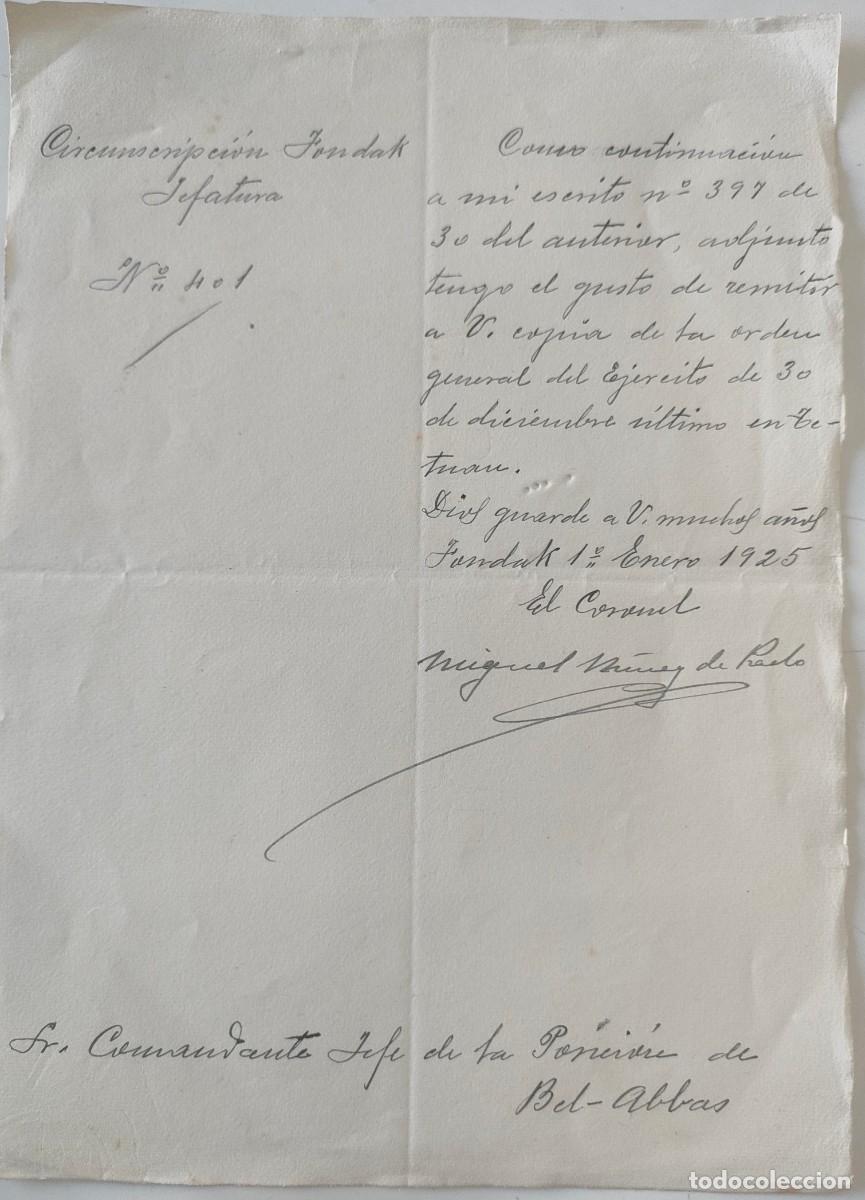 Circunscripción Fondak
Jefatura
Nº 401
Como continuación
a mi escrito nº 397 de
30 del anterior, adjunto
tengo el gusto de remitir
a V. copia de la orden
general del Ejercito de 30
de diciembre último en Te-
tuan.
Dios guarde a V. muchos años
Fondak 1º Enero 1925
El Coronel
Miguel Núñez de Prado
Sr. Comandante Jefe de la Posición de
Bel-Abbas
todocoleccion